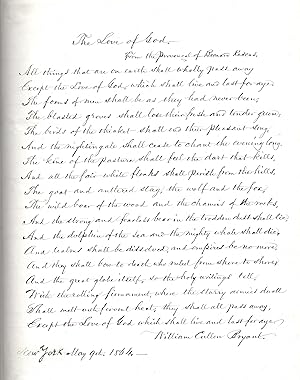 The Love of God.
From the Provençal of Bernard Rascas.
All things that are on earth shall wholly pass away
Except the Love of God, which shall live and last for aye.
The forms of men shall be as they had never been;
The blasted groves shall lose their fresh and tender green;
The birds of the thicket shall end their pleasant song,
And the nightingale shall cease to chant the evening long.
The kine of the pasture shall feel the dart that kills,
And all the fair white flocks shall perish from the hills,
The goat and antlered stag, the wolf and the fox,
The wild boar of the wood and the chamois of the rocks,
And the strong and fearless bear in the trodden dust shall lie;
And the dolphin of the sea and the mighty whale shall die;
And realms shall be dissolved, and empires be no more;
And they shall bow to death who ruled from shore to shore;
And the great globe itself, so the holy writings tell,
With the rolling firmament, where the starry armies dwell
Shall melt with fervent heat; they shall all pass away,
Except the Love of God which shall live and last for aye.
William Cullen Bryant.
New York May 9th. 1864.